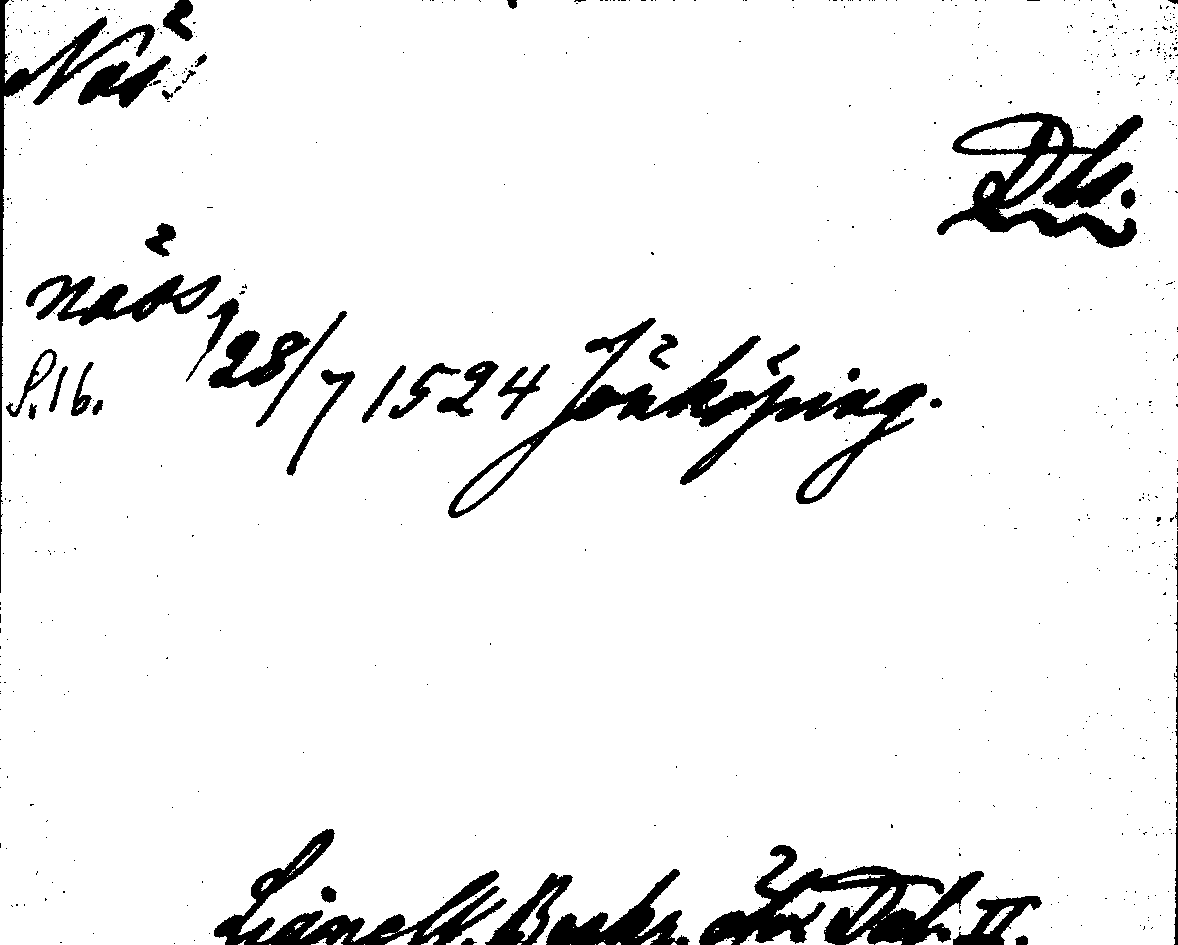 Näs
Dls.
näs, 28/7 1524 Jönköping.
S. 16.
Lignell. Beskr. öfv. Dal. II.